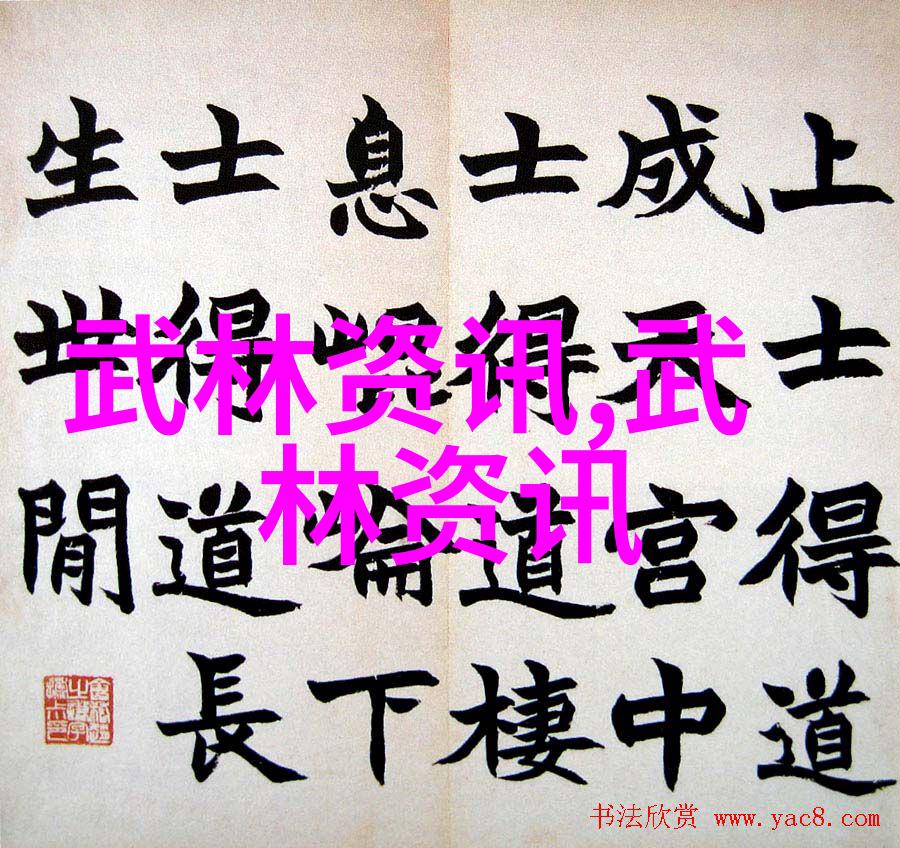 上士得道
成天宫中
士得道棲
息崐崘下
士得道長
生世閒
武林资讯,武
林资讯
书法欣赏 www.yac8.com